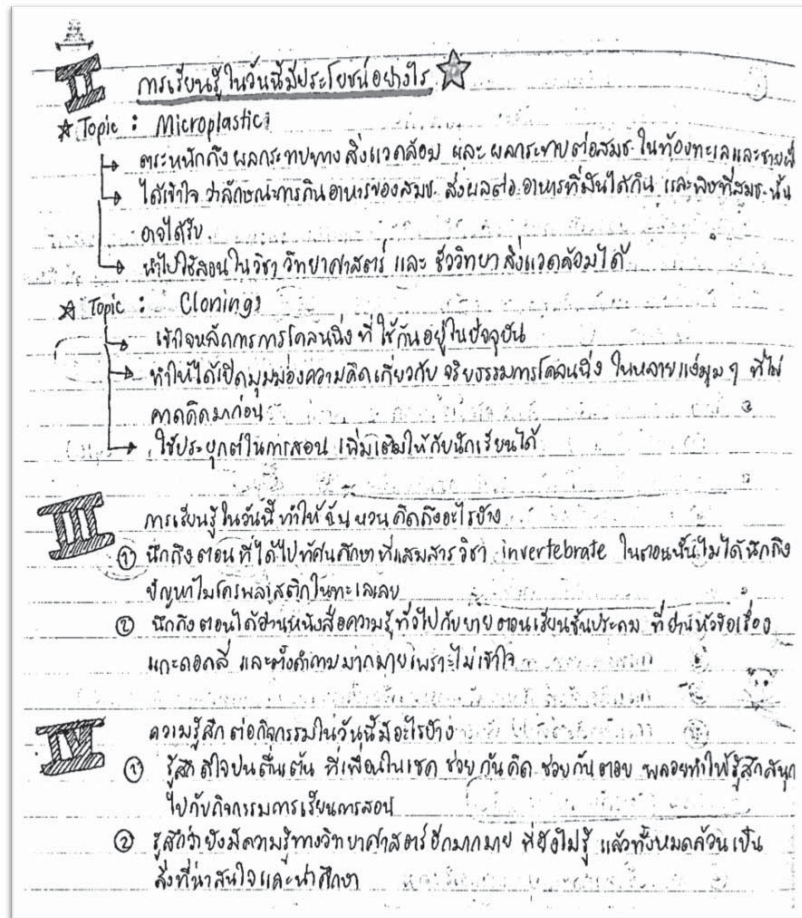 II การเรียนรู้ในวันนี้มีประโยชน์อย่างไร
☆ Topic : Microplastics
→ ตระหนักถึงผลกระทบทางสิ่งแวดล้อม และ ผลกระทบต่อสมช. ในท้องทะเลและชายฝั่ง
→ ได้เข้าใจ ว่าลักษณะการกินอาหารของสมช. ส่งผลต่อ อาหารที่มันได้กิน และพิษที่สมช. นั้น
อาจได้รับ
→ นำไปใช้สอนในวิชา วิทยาศาสตร์ และ ชีววิทยา สิ่งแวดล้อมได้
☆ Topic : Cloning
→ เข้าใจหลักการการโคลนนิ่ง ที่ใช้กันอยู่ในปัจจุบัน
→ ทำให้ได้เปิดมุมมองความคิดเกี่ยวกับ จริยธรรมการโคลนนิ่ง ในหลายแง่มุม ๆ ที่ไม่
คาดคิดมาก่อน
→ ใช้ประยุกต์ในการสอน เพิ่มเติมให้กับนักเรียนได้
III การเรียนรู้ในวันนี้ ทำให้ฉัน หวนคิดถึงอะไรบ้าง
① นึกถึงตอนที่ได้ไปทัศนศึกษาที่แสมสาร วิชา invertebrate ในตอนนั้นไม่ได้นึกถึง
ปัญหาไมโครพลาสติกในทะเลเลย
② นึกถึงตอนได้อ่านหนังสือความรู้ทั่วไปกับยาย ตอนเรียนชั้นประถม ที่อ่านหัวข้อเรื่อง
แกะดอลลี่ และตั้งคำถามมากมายเพราะไม่เข้าใจ
IV ความรู้สึกต่อกิจกรรมในวันนี้มีอะไรบ้าง
① รู้สึกดีใจปนตื่นเต้น ที่เพื่อนในเซค ช่วยกันคิด ช่วยกันตอบ พลอยทำให้รู้สึกสนุก
ไปกับกิจกรรมการเรียนการสอน
② รู้สึกว่ายังมีความรู้ทางวิทยาศาสตร์อีกมากมาย ที่ยังไม่รู้ แล้วทั้งหมดล้วนเป็น
สิ่งที่น่าสนใจและน่าศึกษา